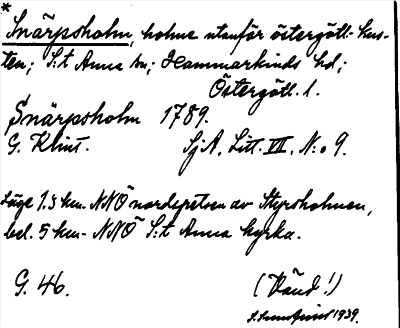 *
Snärpsholm, holme utanför östergötl. kus-
ten; S:t Anna sn; Hammarkinds hd;
Östergötl. l.
Snärpsholm 1789.
G. Klint. SjA, Litt. VII, N:o 9.
Läge 1.3 km. NNÖ nordspetsen av Styrsholmen,
bel. 5 km. NNÖ S:t Anna kyrka.
G. 46. (Vänd!)
1939.